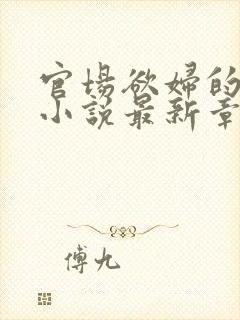 官场欲婦的
小説最新章
傅九